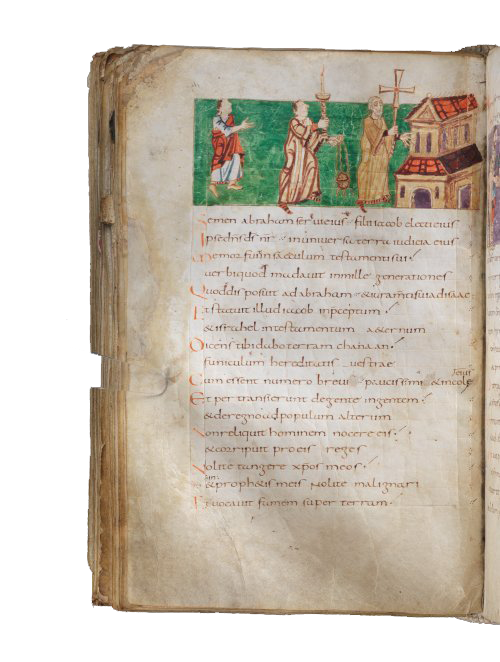 Semen abraham servi eius · filii iacob electi eius
Ipse dns ds nr · in universa terra iudicia eius
Memor fuit in saeculum testamenti sui
verbi quod mandavit in mille generationes
Quod disposuit ad abraham · & iuramti sui ad isaac
Et statuit illud iacob in preceptum
& israhel in testamentum a&ernum
Dicens tibi dabo terram chanaan
funiculum hereditatis vestrae
Cum essent numero brevi paucissimi & incole
eius
Et per transierunt de gente in gentem
& de regno ad populum alterum
Non reliquit hominem nocere eis
& corripuit pro eis reges
Nolite tangere xpos meos
& in proph&is meis nolite malignari
Et vocavit famem super terram